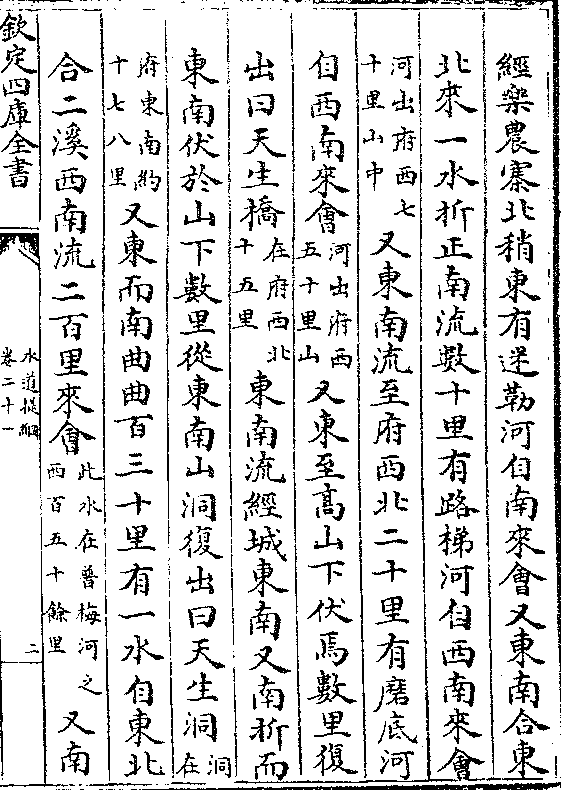 經樂農寨北稍東有迷勒河自南來會又東南合東
北來一水折正南流數十里有路梯河自西南來會
河出府西七十里山中又東南流至府西北二十里有磨底河
自西南來會河出府西五十里山又東至髙山下伏焉數里復
出曰天生橋在府西北十五里東南流經城東南又南折而
東南伏於山下數里從東南山洞復出曰天生洞洞在
府東南約十七八里又東而南曲曲百三十里有一水自東北
合二溪西南流二百里來會此水在普梅河之西百五十餘里又南
欽定四庫全書
水道提綱
卷二十一
二